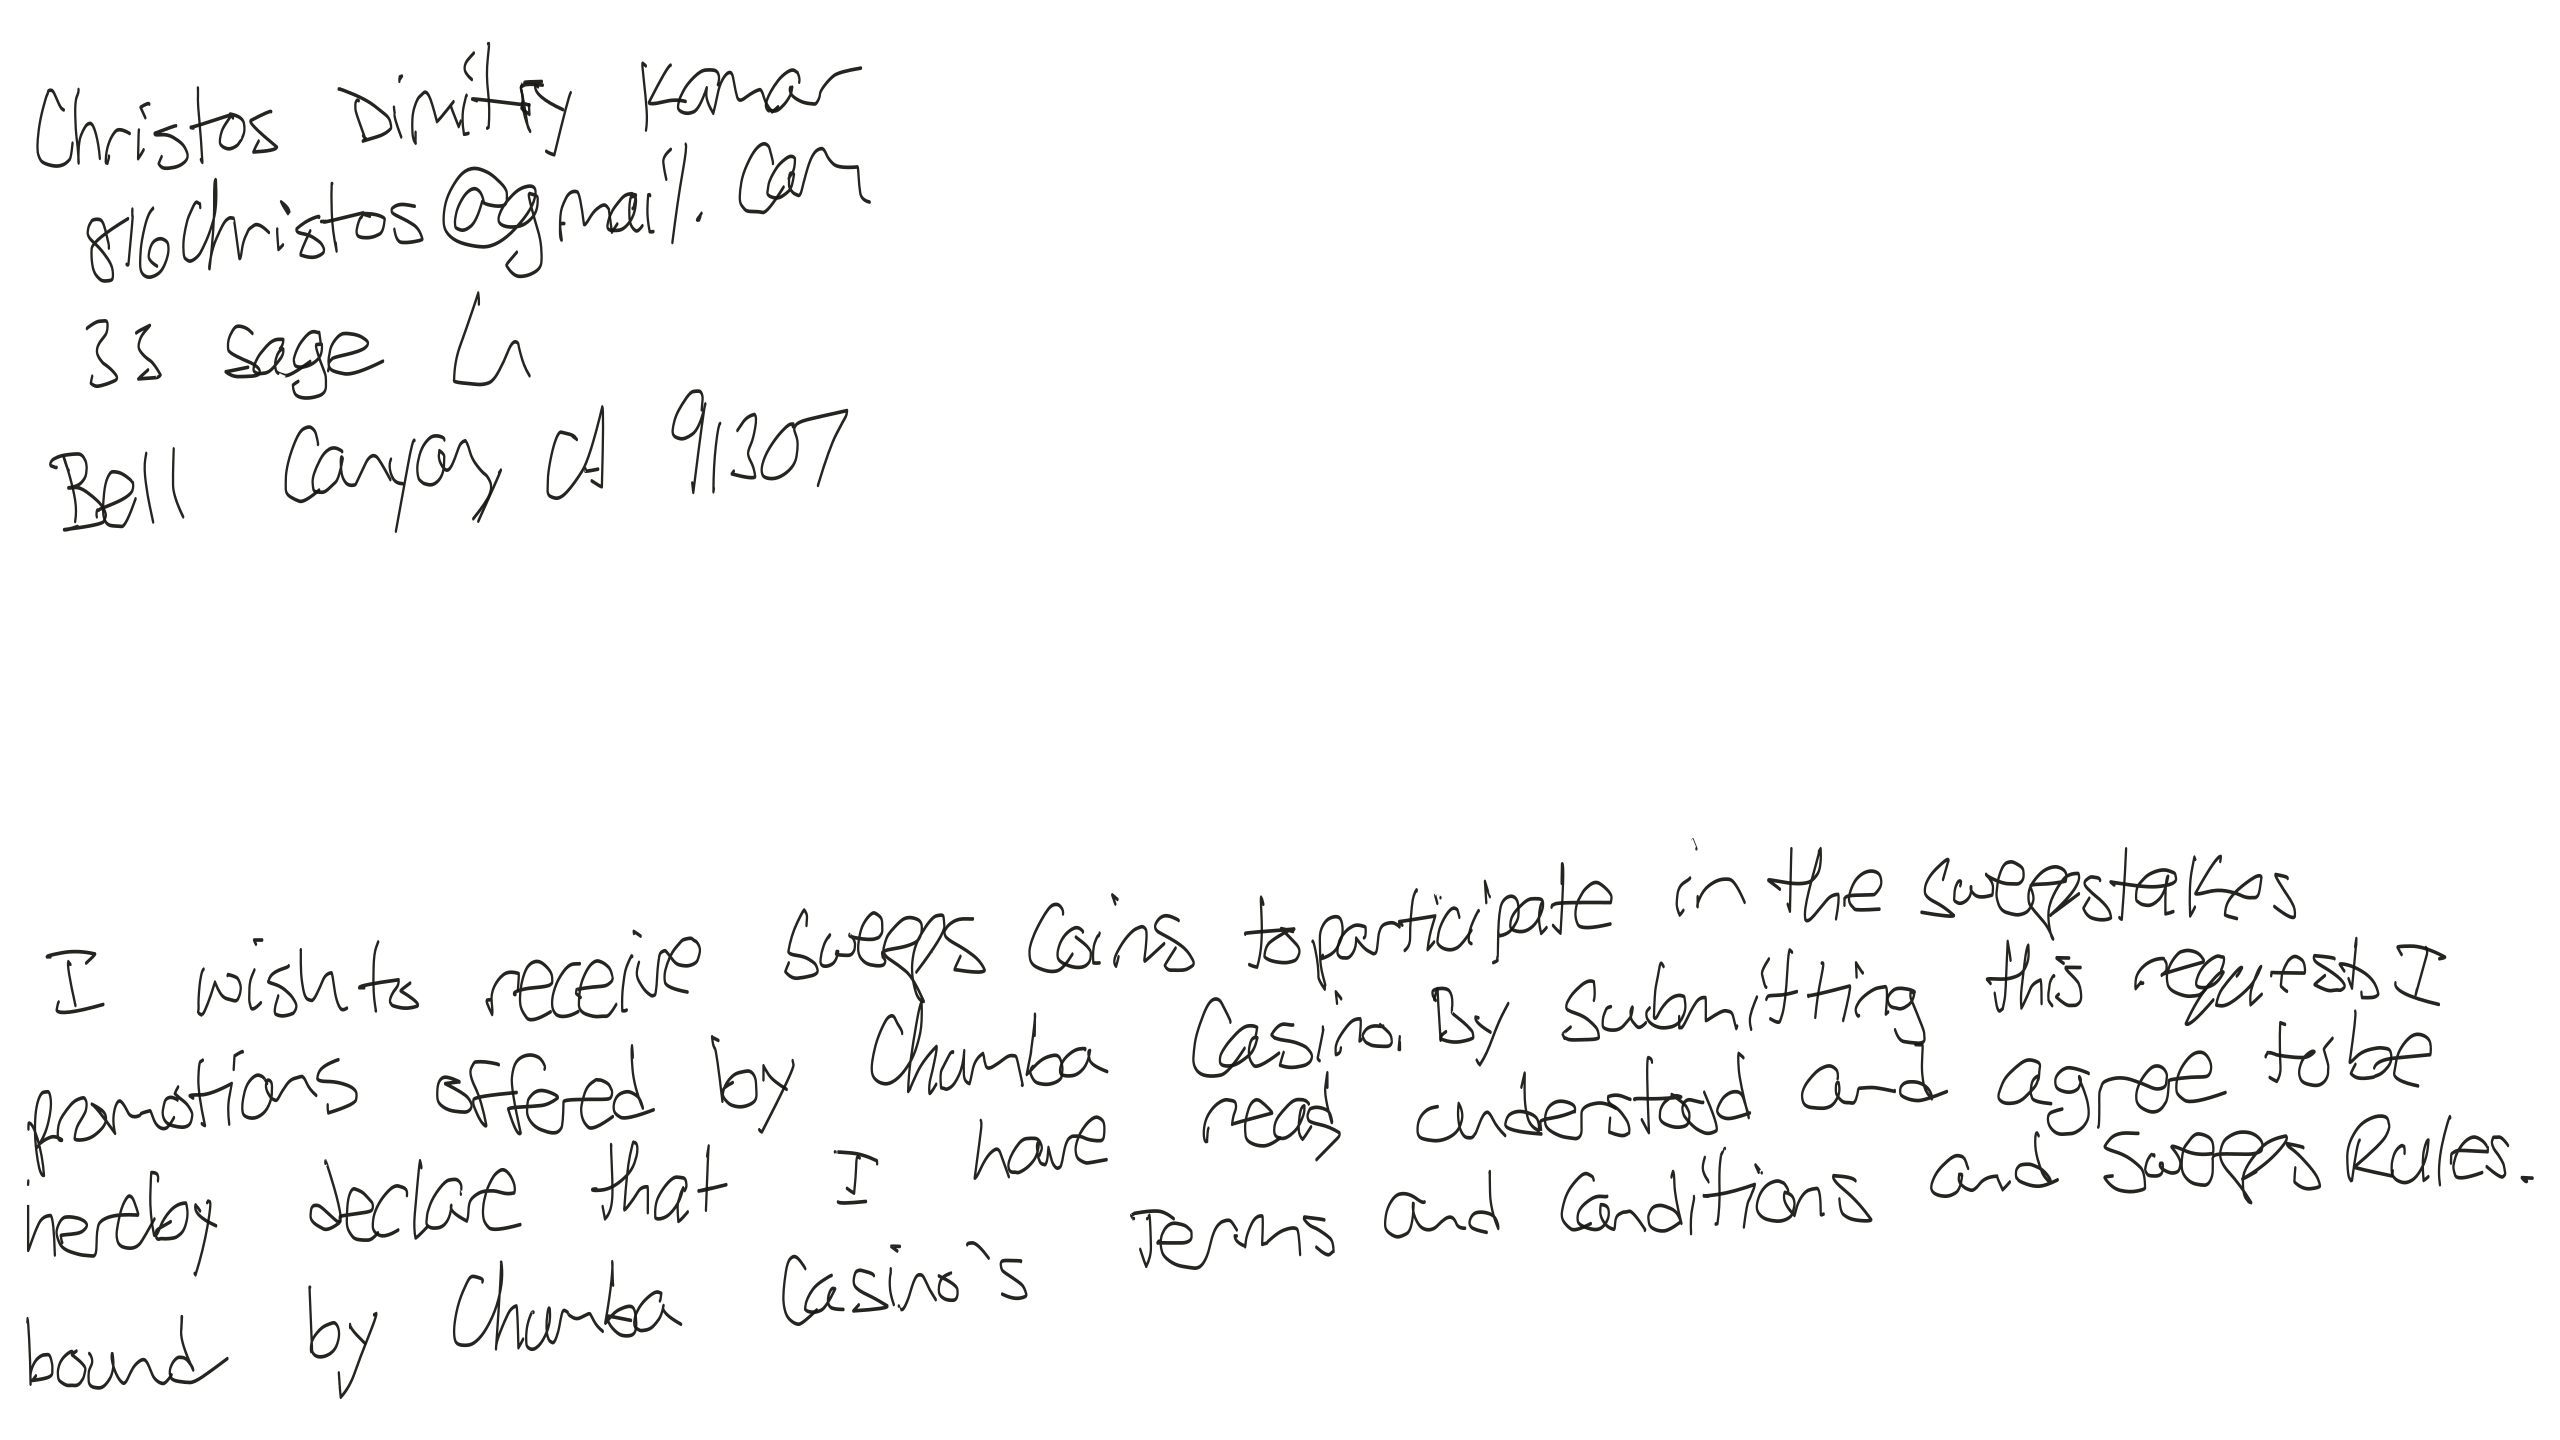 Christos Dimitry Kamar
816Christos@gmail.com
33 sage Ln
Bell Canyon, CA 91307
I wish to receive sweeps Coins to participate in the sweepstakes
promotions offered by Chumba Casino. By Submitting this request, I
hereby declare that I have read, understood and agree to be
bound by Chumba Casino's Terms and Conditions and Sweeps Rules.